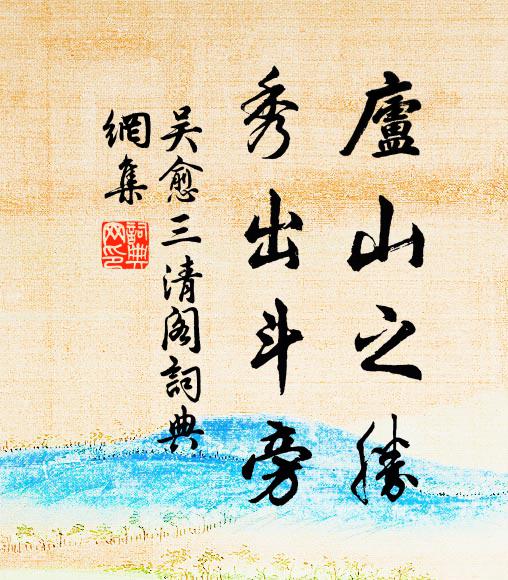 廬山之勝
秀出斗旁
吴愈三清阁詞典
網集
詞典
网印